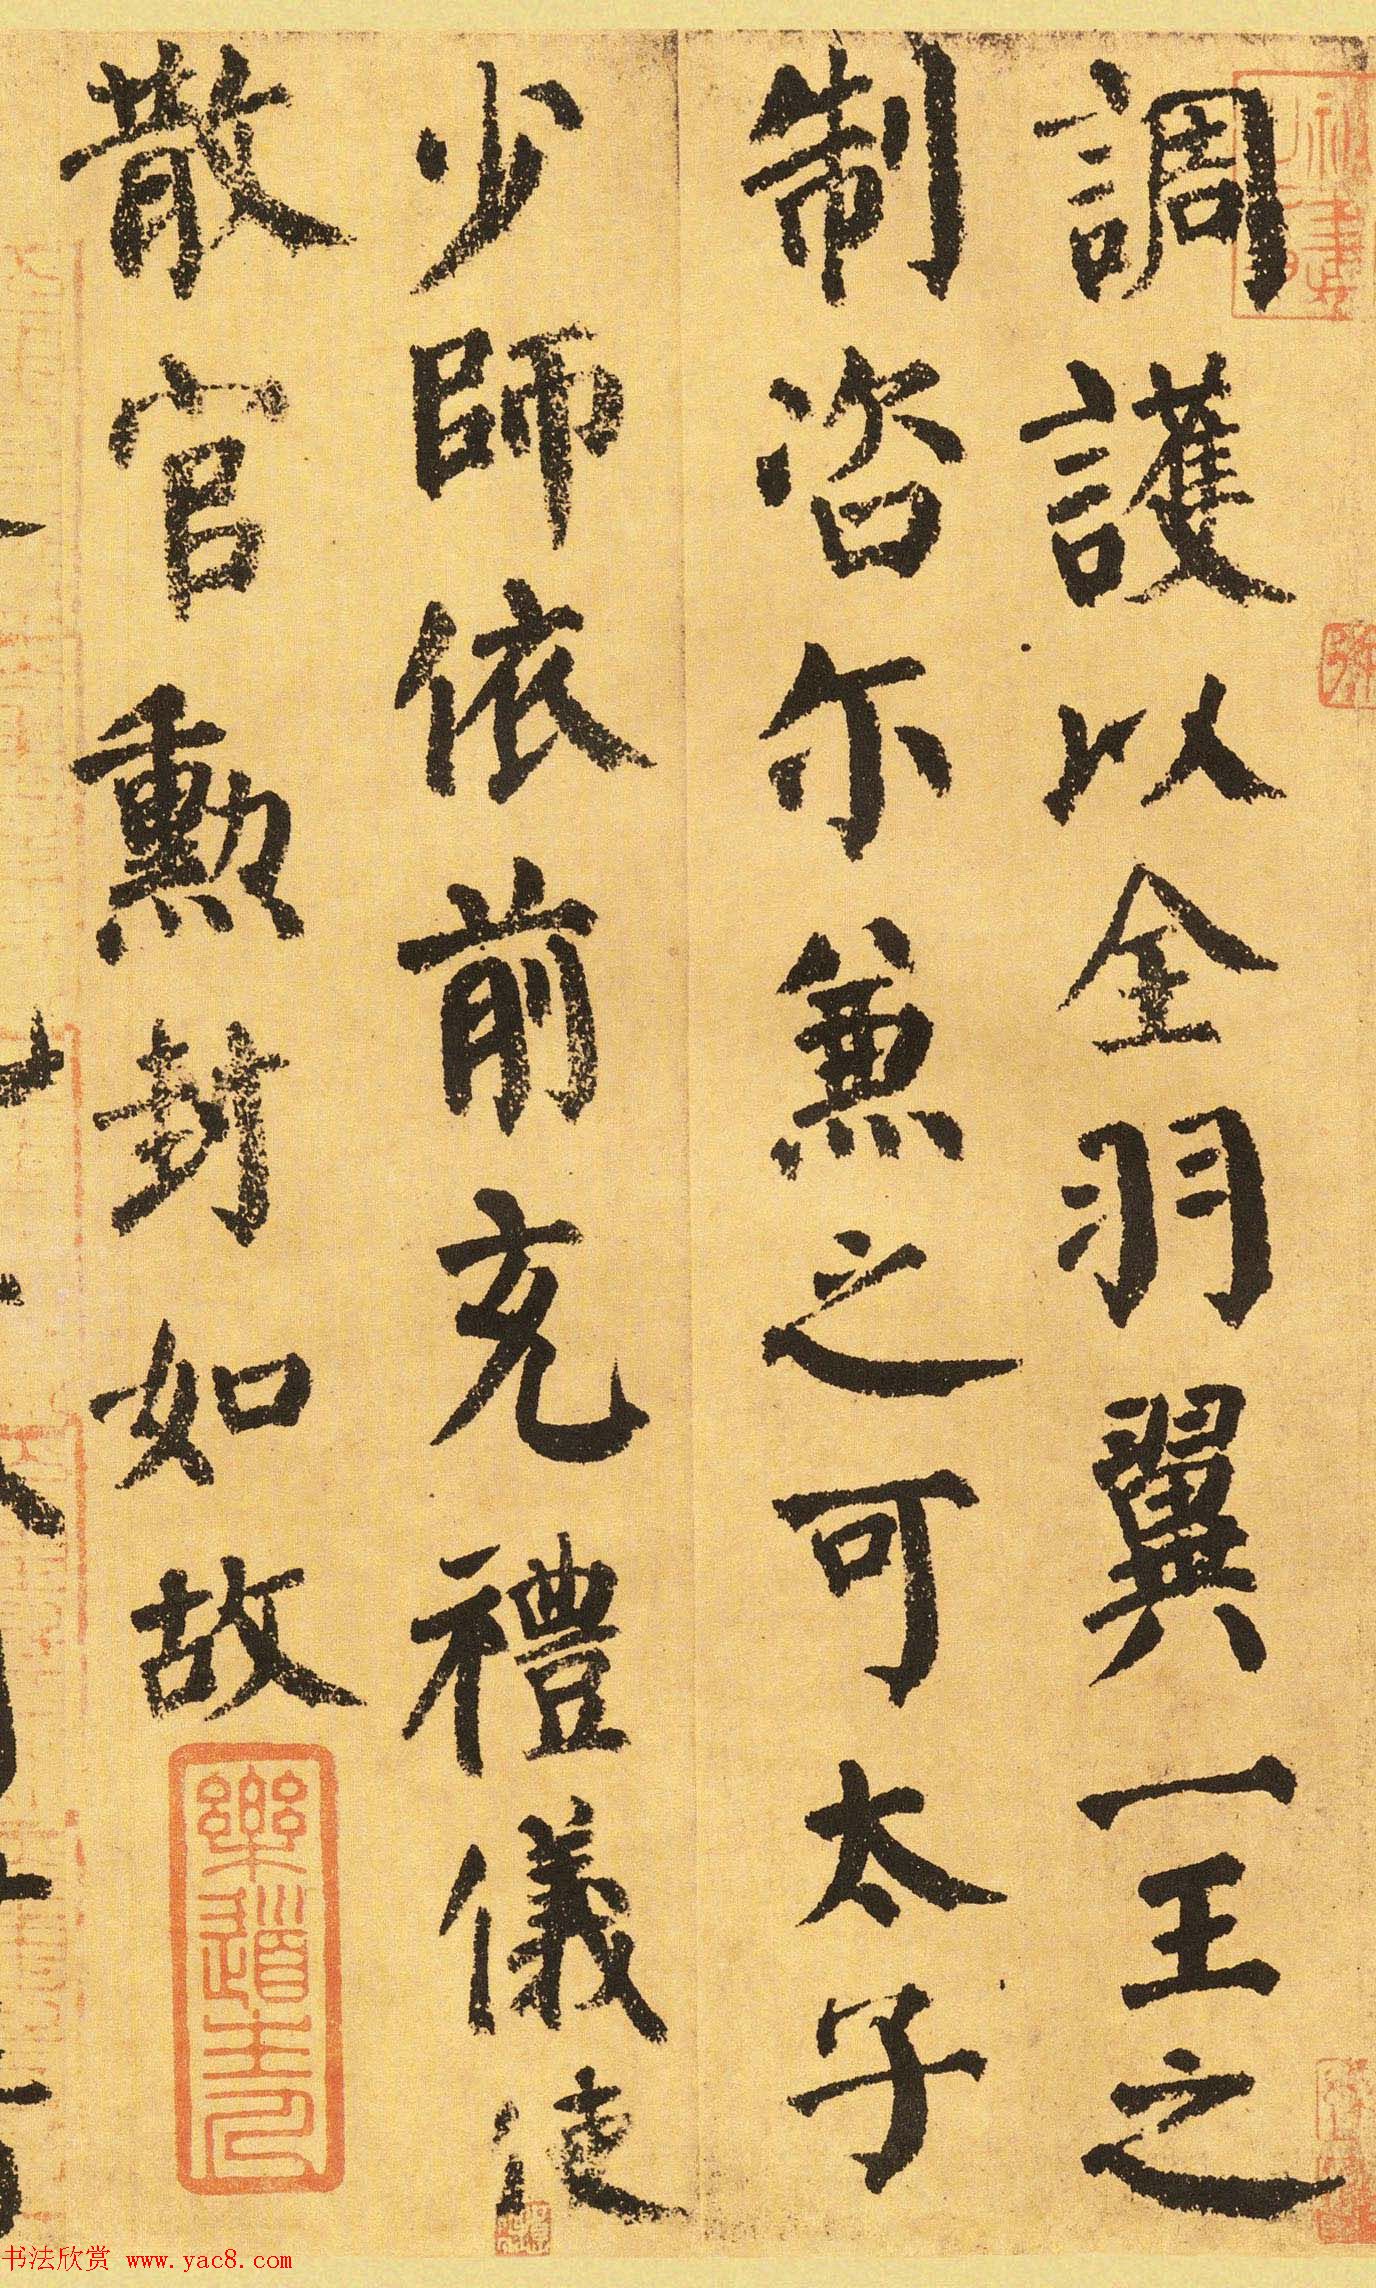 調護以全羽翼一王之
制咨尔兼之可太子
少師依前充禮儀使
散官勲封如故
樂道主人
书法欣赏 www.yac8.com